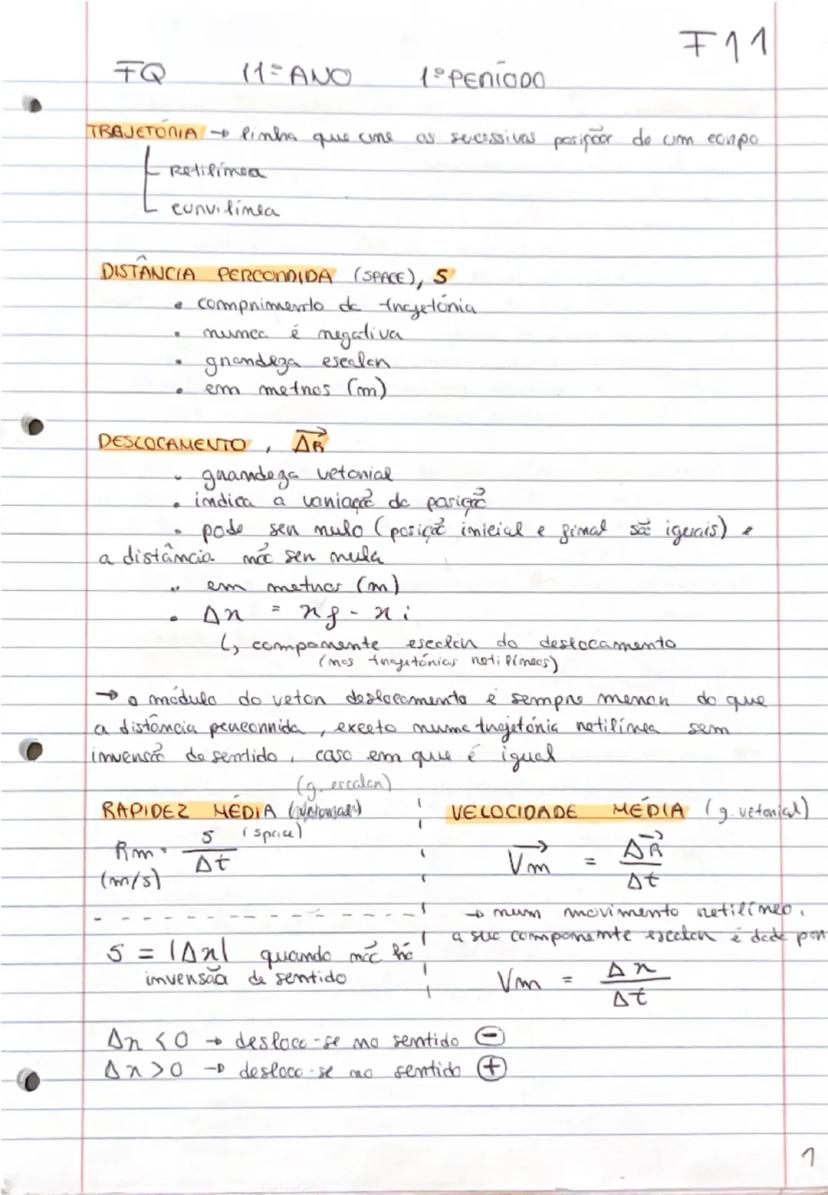 F11
FQ 11º ANO 1º PERÍODO
TRAJETÓRIA → linha que une as sucessivas posições de um corpo
Retilínea
curvilínea
DISTÂNCIA PERCORRIDA (SPACE), S
• comprimento da trajetória
• nunca é negativa
• grandeza escalar
• em metros (m)
DESLOCAMENTO, ΔR⃗
• grandeza vetorial
• indica a variação de posição
• pode ser nulo (posição inicial e final são iguais) e
a distância não ser nula
• em metros (m)
• Δx = xf - xi
↳ componente escalar do deslocamento
(nas trajetórias retilíneas)
→ o módulo do vetor deslocamento é sempre menor do que
a distância percorrida, exceto numa trajetória retilínea sem
inversão de sentido, caso em que é igual
(g. escalar)
RAPIDEZ MÉDIA
Rm = S (space) / Δt
(m/s)
S = |Δx| quando não há
inversão de sentido
VELOCIDADE MÉDIA (g. vetorial)
V⃗m = ΔR⃗ / Δt
→ num movimento retilíneo,
a sua componente escalar é dada por
Vm = Δx / Δt
Δx < 0 → desloca-se no sentido ⊖
Δx > 0 → desloca-se no sentido ⊕
1